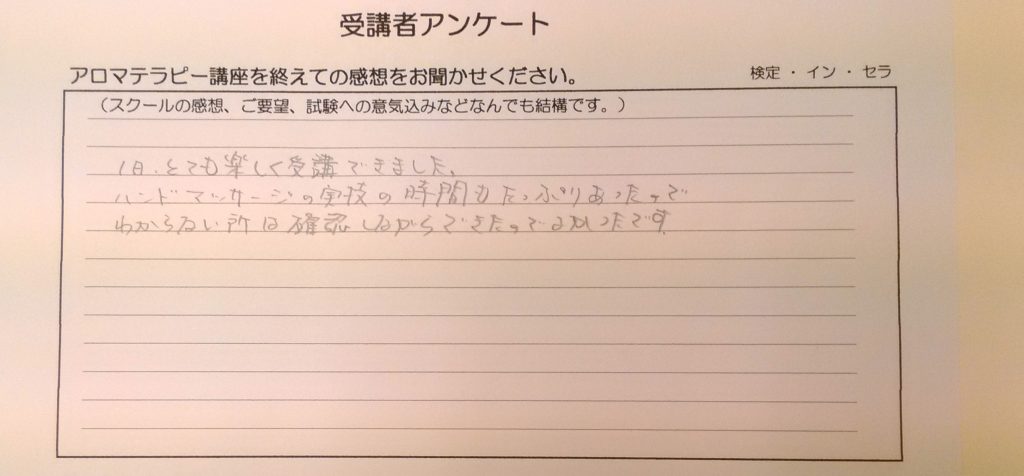 受講者アンケート
アロマテラピー講座を終えての感想をお聞かせください。
検定 ・ イン ・ セラ
（スクールの感想、ご要望、試験への意気込みなどなんでも結構です。）
1日、とても楽しく受講できました。
ハンドマッサージの実技の時間もたっぷりあったので
わからない所は確認しながらできたのでよかったです